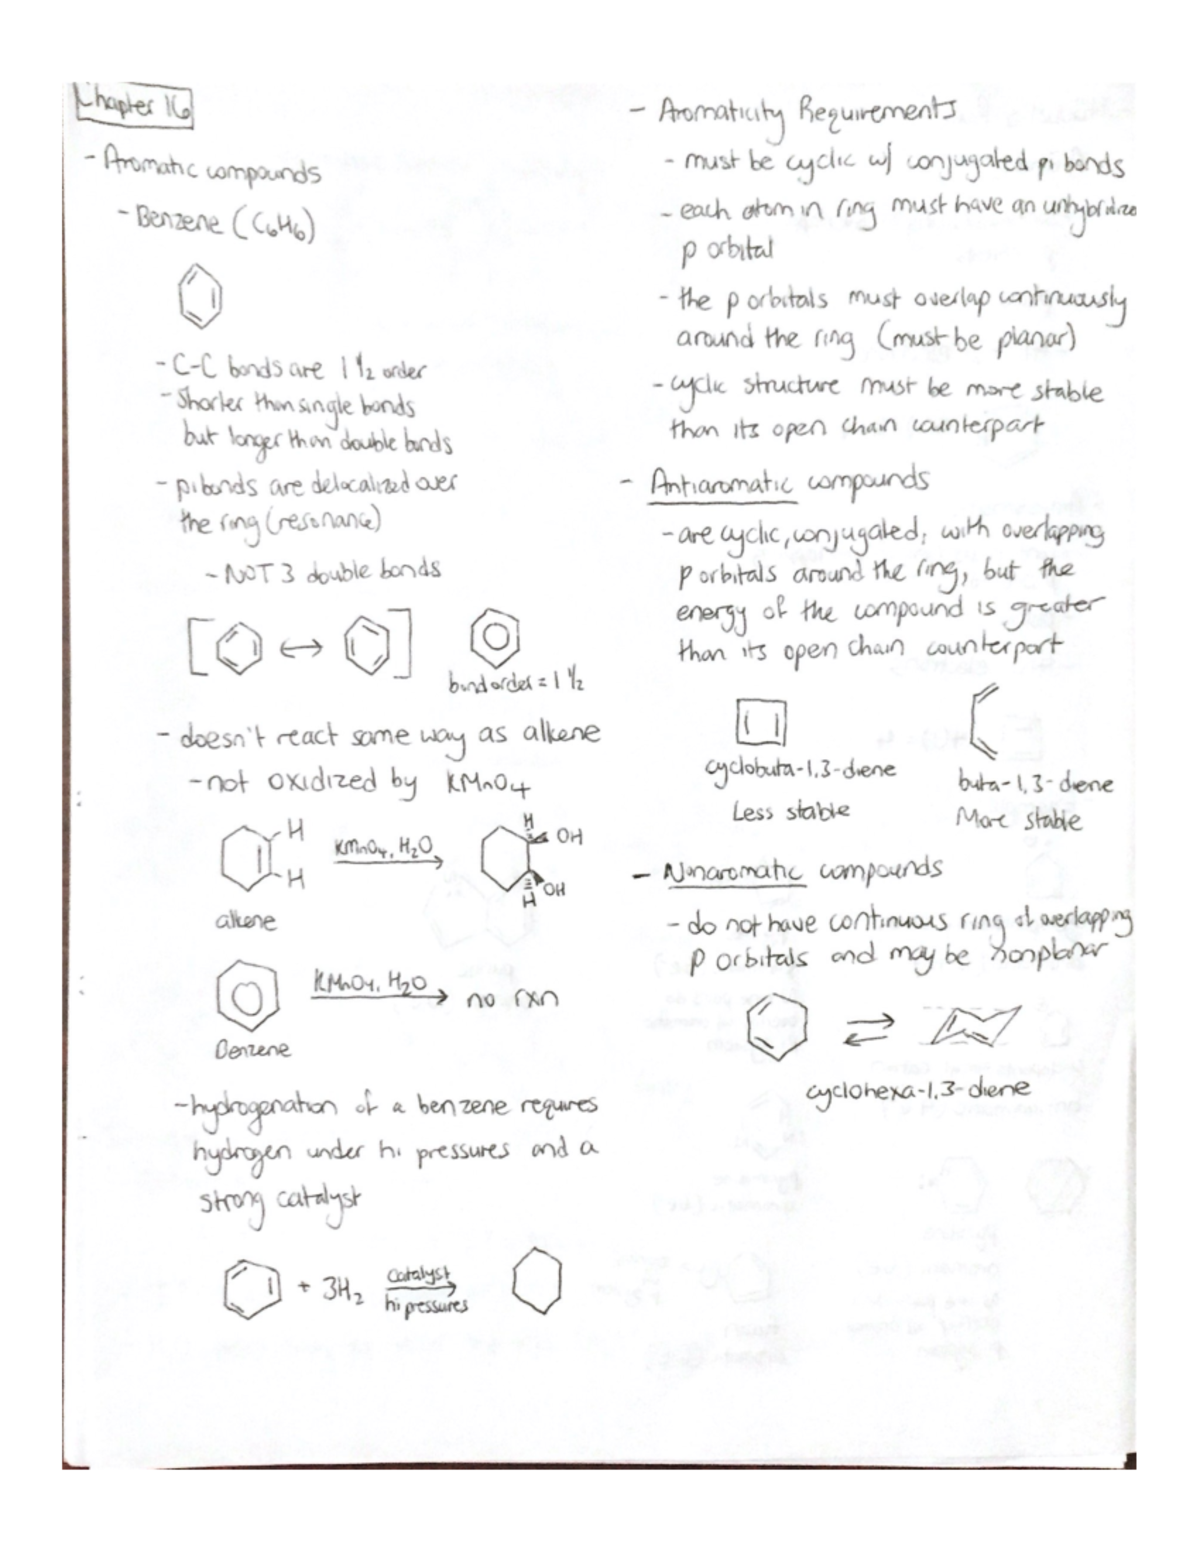 Chapter 16
- Aromatic compounds
- Benzene (C6H6)
- C-C bonds are 1 1/2 order
- Shorter than single bonds
but longer than double bonds
- pi bonds are delocalized over
the ring (resonance)
- NOT 3 double bonds
bond order = 1 1/2
- doesn't react same way as alkene
- not oxidized by KMnO4
H
H
KMnO4, H2O
H
OH
H
OH
alkene
KMnO4, H2O
no rxn
Benzene
- hydrogenation of a benzene requires
hydrogen under hi pressures and a
strong catalyst
+ 3H2
catalyst
hi pressures
- Aromaticity Requirements
- must be cyclic w/ conjugated pi bonds
- each atom in ring must have an unhybridize
p orbital
- the p orbitals must overlap continuously
around the ring (must be planar)
- cyclic structure must be more stable
than its open chain counterpart
- Antiaromatic compounds
- are cyclic, conjugated, with overlapping
p orbitals around the ring, but the
energy of the compound is greater
than its open chain counterpart
cyclobuta-1,3-diene
Less stable
buta-1,3-diene
More stable
- Nonaromatic compounds
- do not have continuous ring of overlapping
p orbitals and may be nonplanar
cyclohexa-1,3-diene